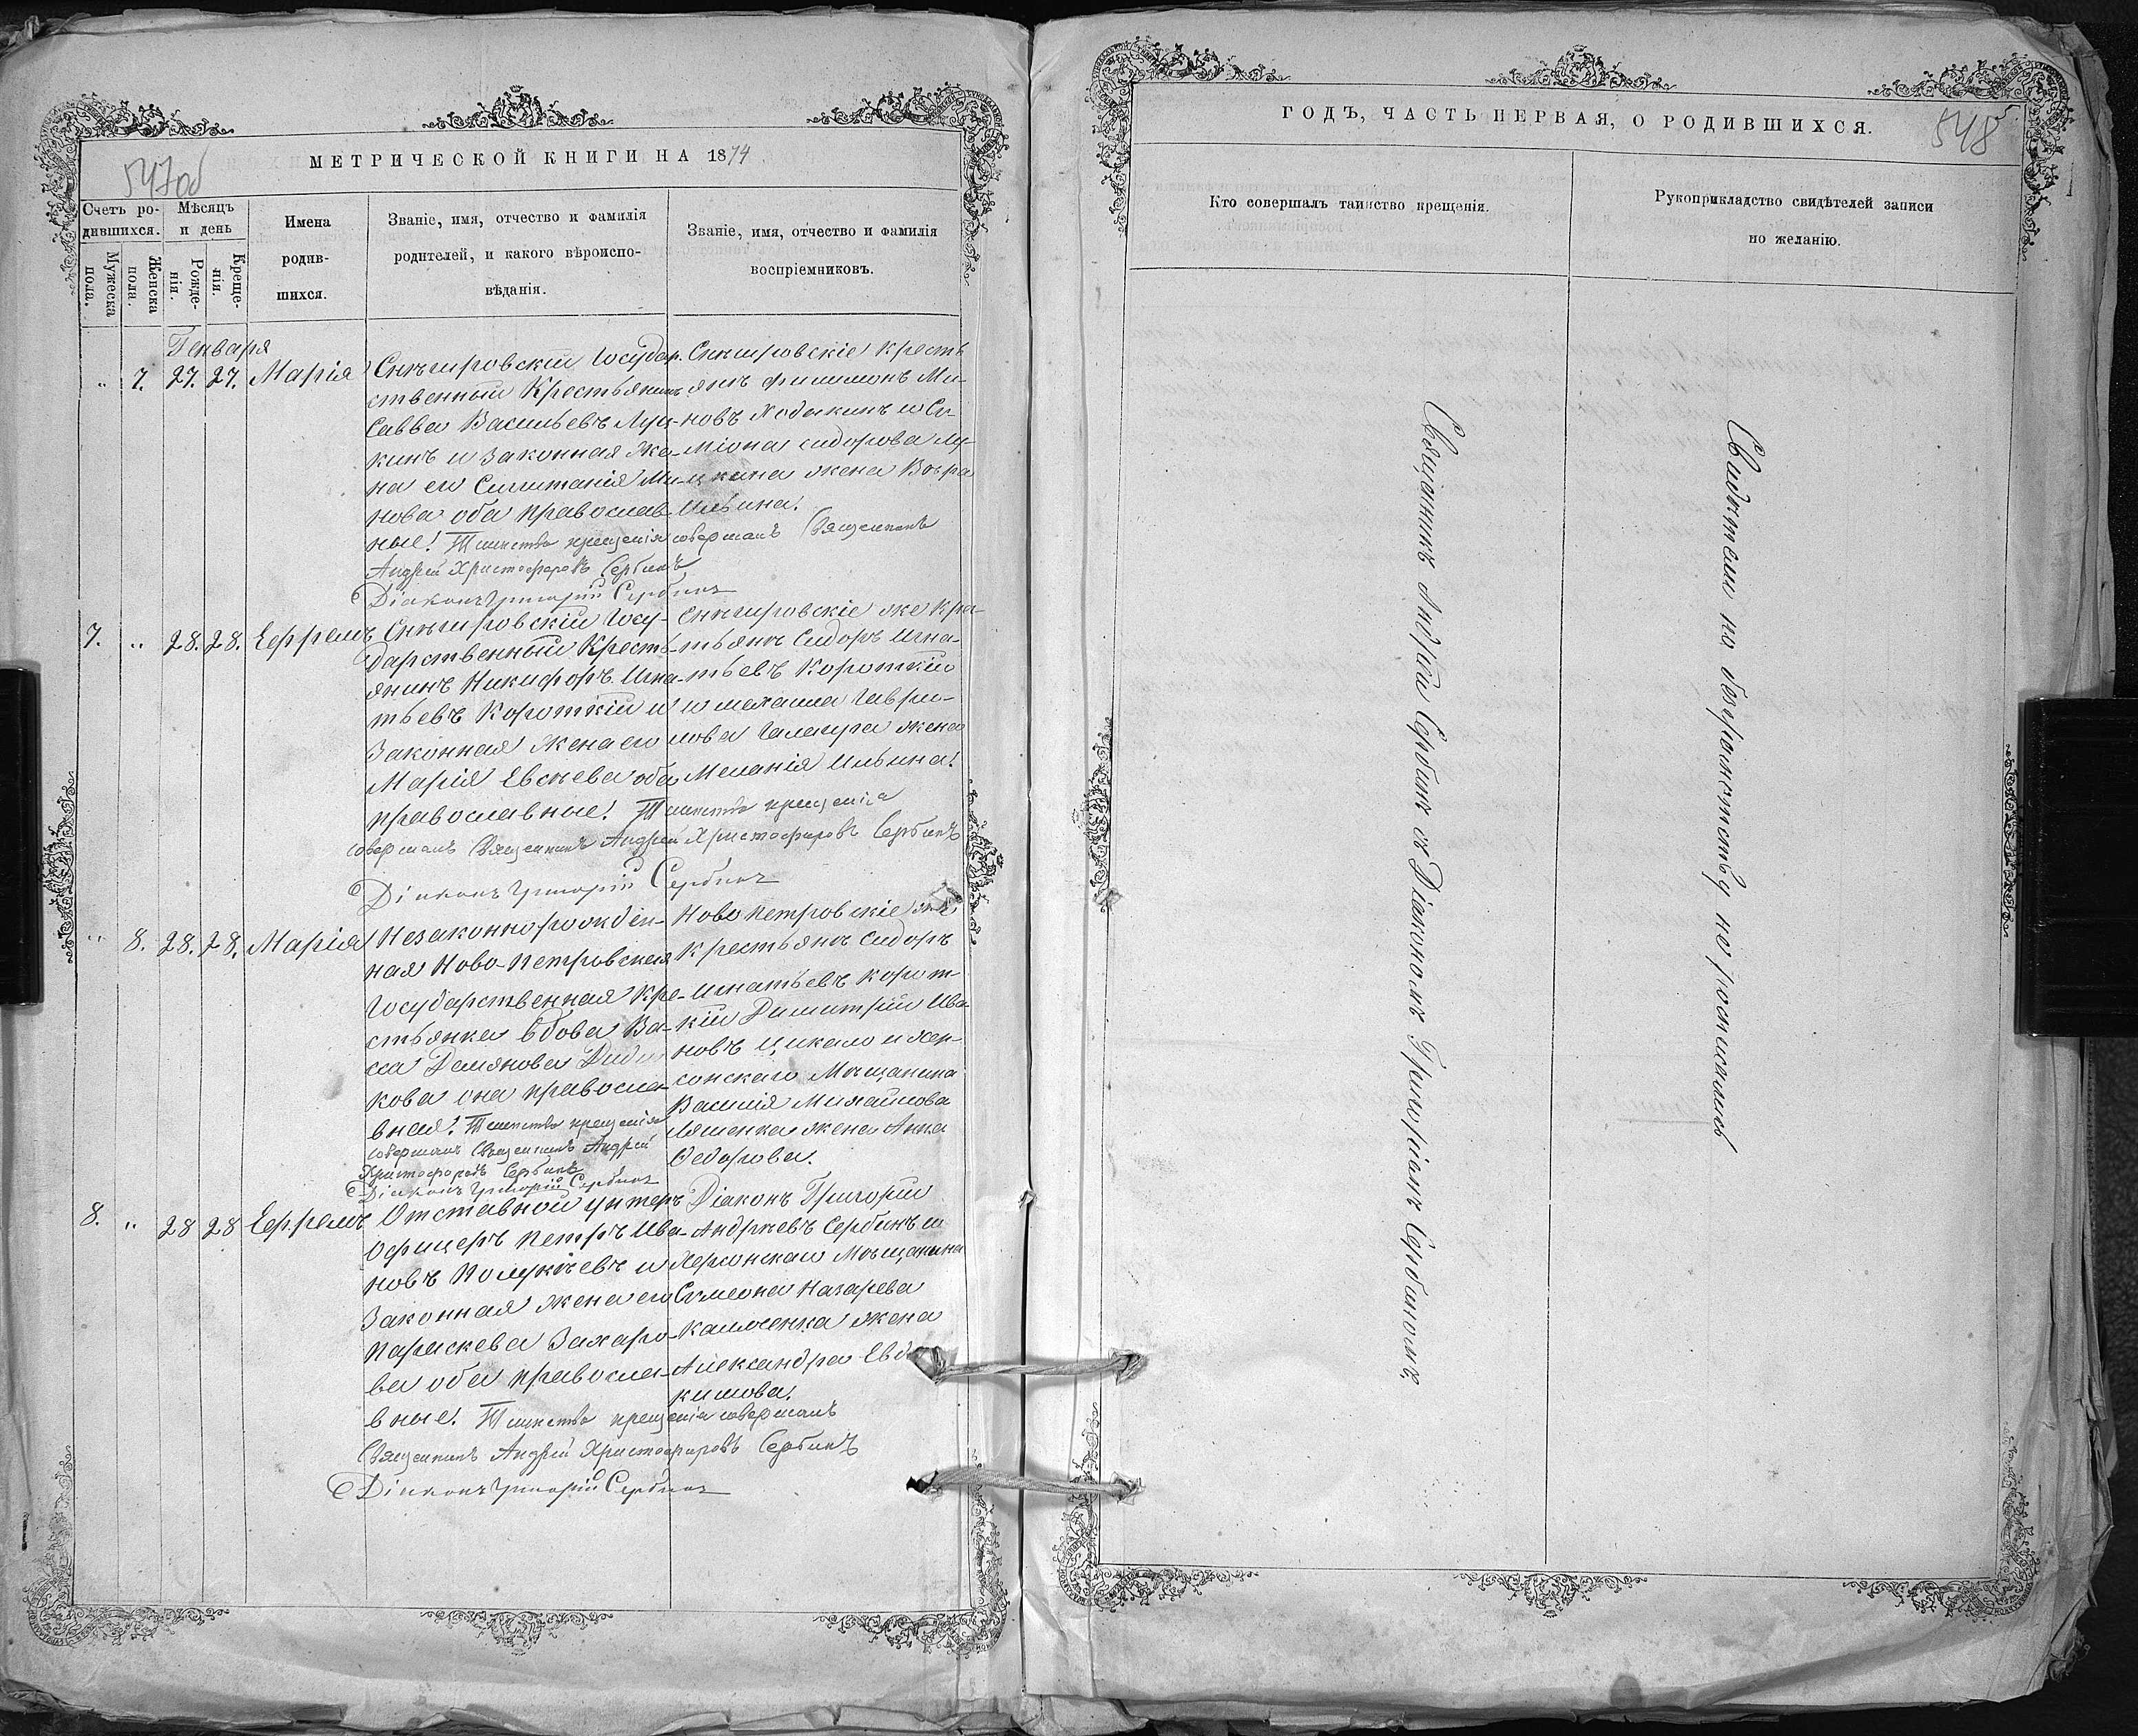 547об
МЕТРИЧЕСКОЙ КНИГИ НА 1874
Счетъ ро-
дившихся.
Мужеска
пола.
Женска
пола.
Мѣсяцъ
и день
Рожде-
нія.
Креще-
нія.
Имена
родив-
шихся.
Званіе, имя, отчество и фамилія
родителей, и какого вѣроиспо-
вѣданія.
Званіе, имя, отчество и фамилія
воспріемниковъ.
Генваря
" 7. 27. 27. Марія
Снѣгировскій Государ-
ственный Крестьянинъ
Савва Васильевъ Луц-
кинъ и законная же-
на его Ми-
нова оба православ-
ные! Таинство крещенія совершалъ Священникъ
Андрей Христофоровъ Сербинъ
Діаконъ Григорій Сербинъ
Снѣгировскіе кресть
янѣ Филимонъ Ми-
новъ и Си-
міона Сидорова Лу-
цкина жена
Ильина!
7. " 28. 28. Ефремъ
Снѣгировскій Госу-
дарственный Кресть-
янинъ Никифоръ Игна-
тьевъ Короткій и
законная жена его
Марія Евсѣева оба
православные! Таинство крещенія
совершалъ Священникъ Андрей Христофоровъ Сербинъ
Діаконъ Григорій Сербинъ
Снѣгировскіе же кре-
стьянѣ Сидоръ Игна-
тьевъ Короткій
и Гаври-
лова жена
Меланія Ильина!
" 8. 28. 28. Марія
Незаконнорожден-
ная Ново-Петровская
Государственная кре-
стьянка вдова Ва-
са Демянова
кова она правосла-
вная! Таинство крещенія
совершалъ Священникъ Андрей
Христофоровъ Сербинъ
Діаконъ Григорій Сербинъ
Новопетровскіе же
крестьянѣ Сидоръ
Игнатьевъ Корот-
кій Димитрій Ива-
новъ Цикало и Хер-
сонскаго Мѣщанина
Василія Михайлова
Ляшенка жена Анна
Федорова.
8. " 28 28 Ефремъ
Отставной унтеръ
Офицеръ Петръ Ива-
новъ и
законная жена его
Параскева Захаро-
ва оба правосла-
вные! Таинство крещенія совершалъ
Священникъ Андрей Христофоровъ Сербинъ
Діаконъ Григорій Сербинъ
Діаконъ Григорій
Андреевъ Сербинъ и
Херсонскаго Мѣщанина
Симеона Назарева
жена
Александра Евдо
кимова!
ГОДЪ, ЧАСТЬ ПЕРВАЯ, О РОДИВШИХСЯ.
548
Кто совершалъ таинство крещенія.
Рукоприкладство свидѣтелей записи
по желанію.
Священникъ Андрей Сербинъ съ Діакономъ Григоріемъ Сербиномъ
Свидѣтели по безграмотству не росписались